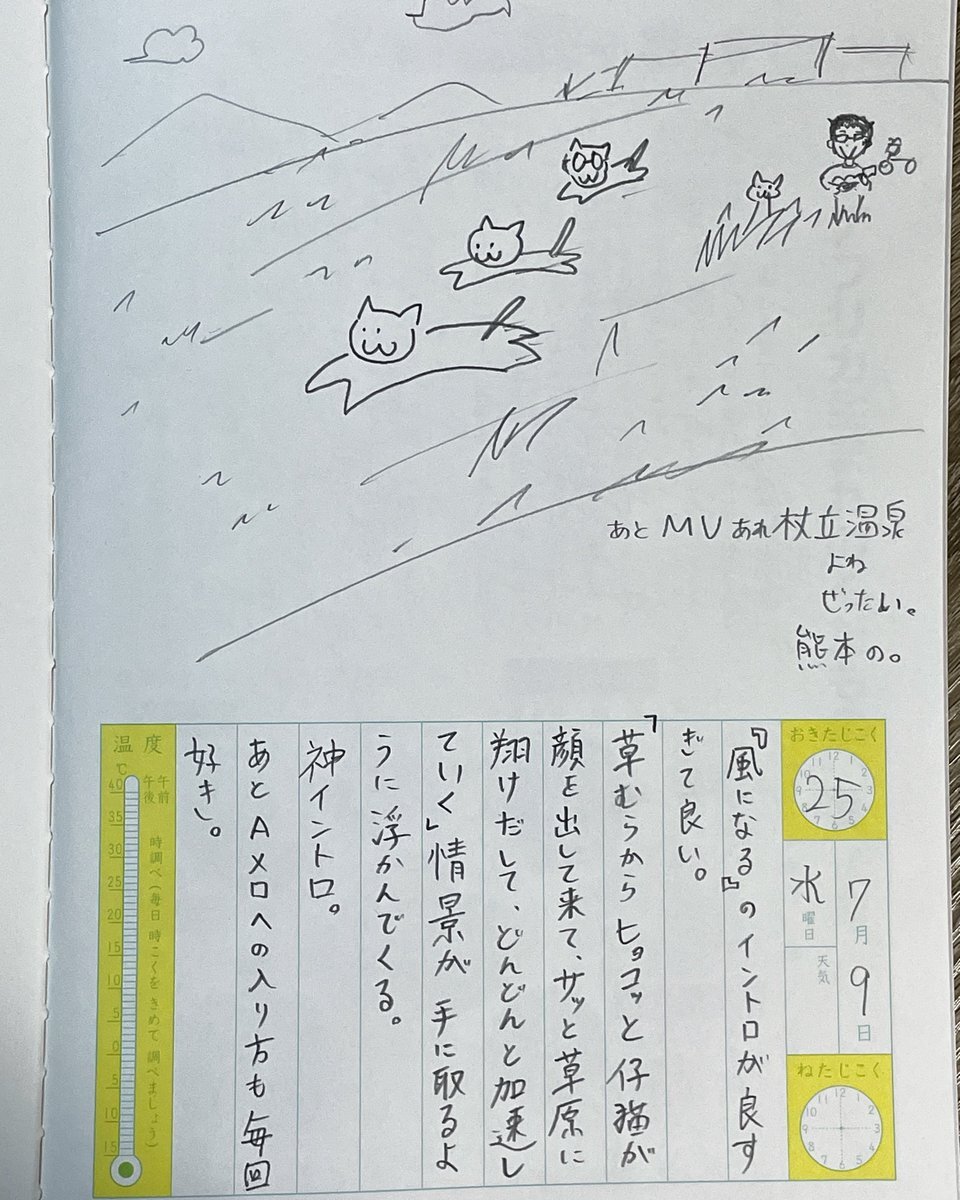 あとMVあれ杖立温泉
よね
ぜったい。
熊本の。
おきたじこく
25
7月9日
水曜日
天気
ねたじこく
『風になる』のイントロが良す
ぎて良い。
「草むらからヒョコッと仔猫が
顔を出して来て、サッと草原に
翔けだして、どんどんと加速し
ていく」情景が手に取るよ
うに浮かんでくる。
神イントロ。
あとAメロへの入り方も毎回
好き。
温度
℃
午前
午後
時調べ(毎日時こくをきめて調べましょう)
40
35
30
25
20
15
10
5
0
5
10
15